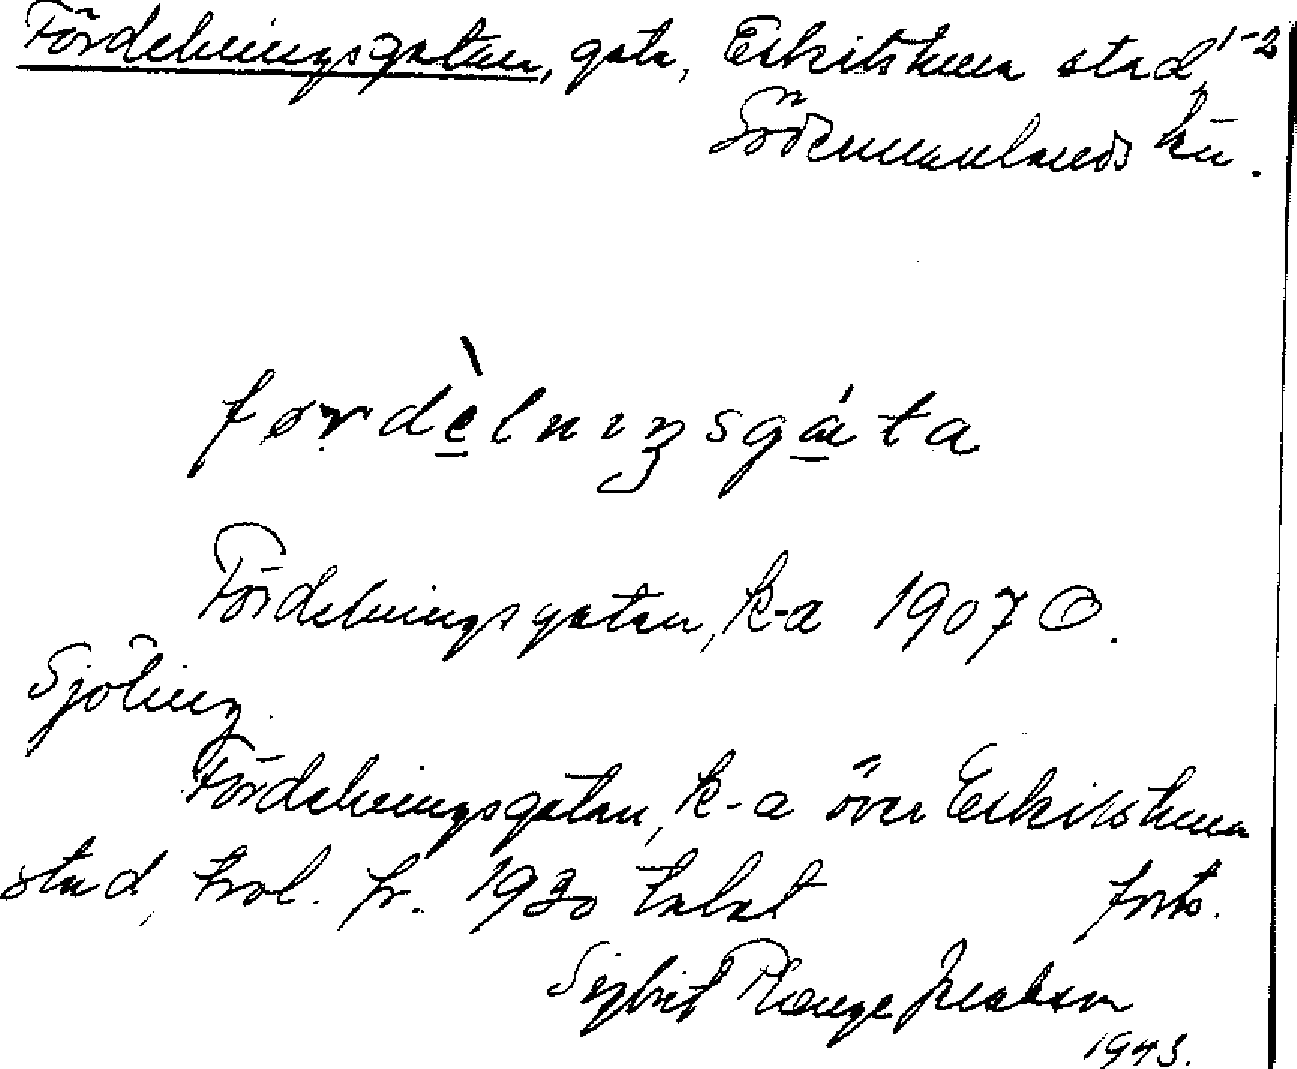 Fördelningsgatan, gata, Eskilstuna stad, 1-2
Södermanlands län.
førdèlnıŋsgáta
Fördelningsgatan, k-a 1907 O.
Sjöling.
Fördelningsgatan, k-a över Eskilstuna
stad, trol. fr. 1930 talet forts.
Sigbrit Plænge Jacobson
1943.